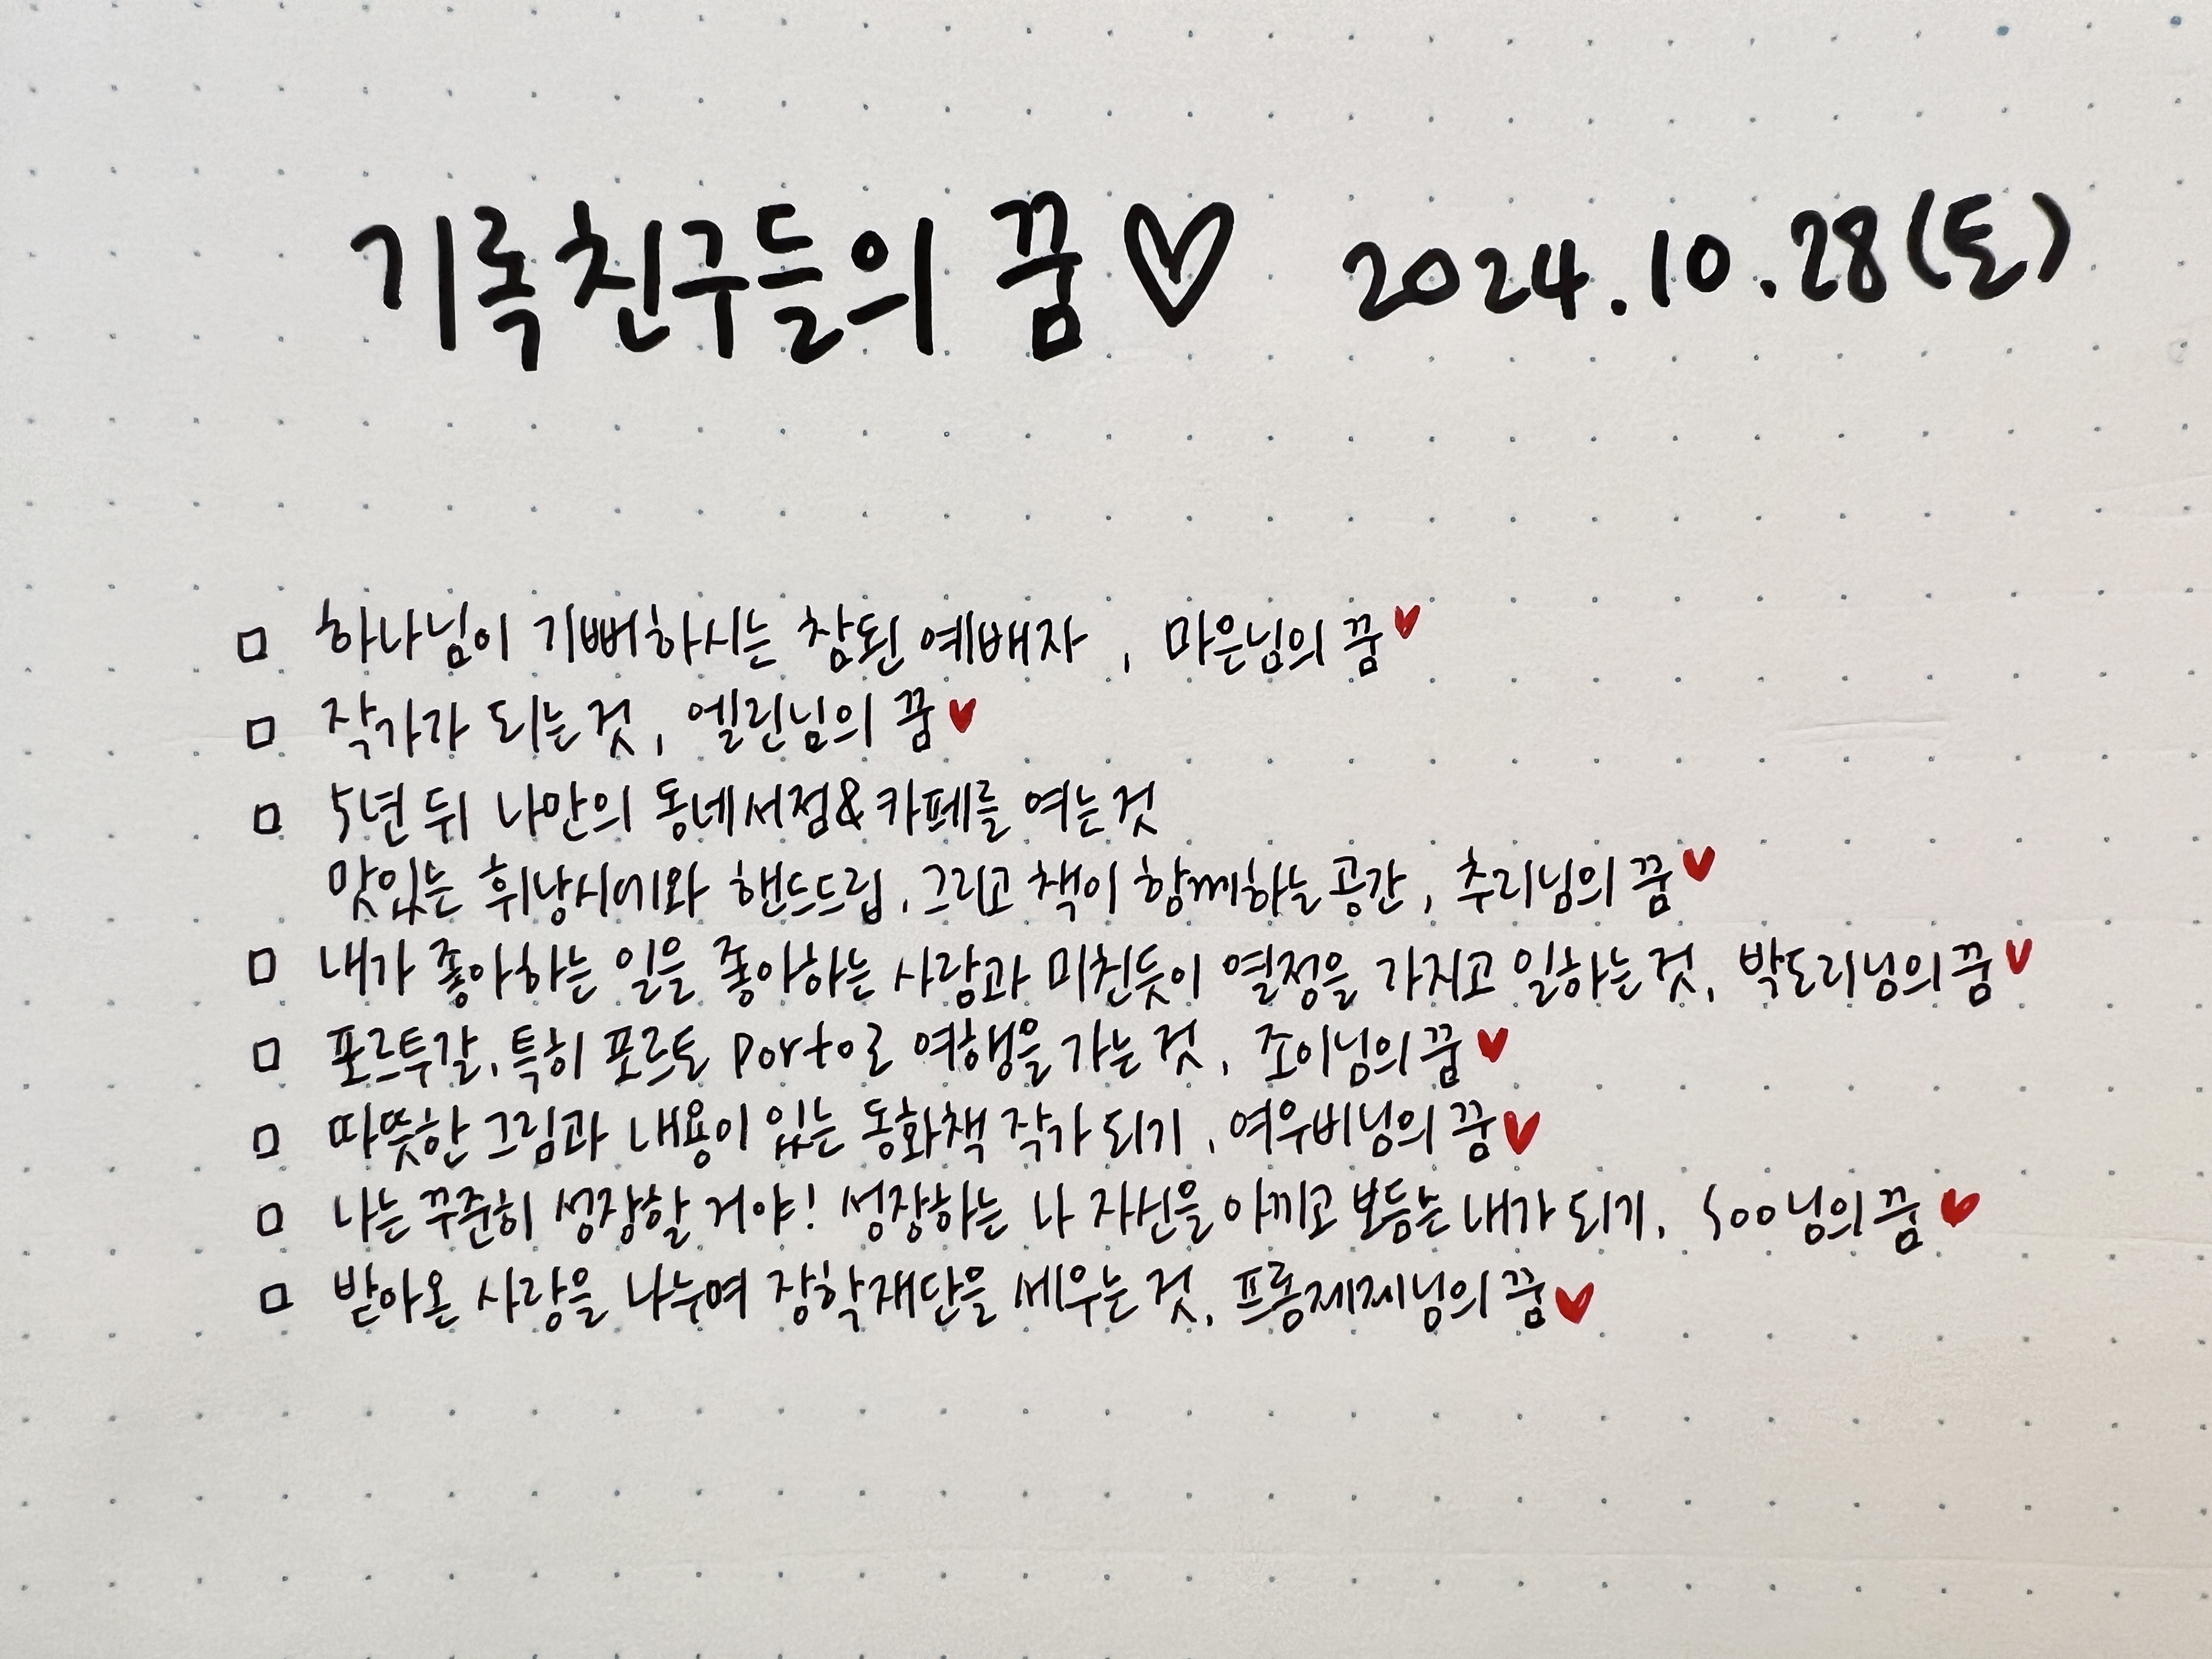 기록친구들의 꿈♡ 2024.10.28(토)
□ 하나님이 기뻐하시는 참된 예배자, 마은님의 꿈♥
□ 작가가 되는것, 엘린님의 꿈♥
□ 5년 뒤 나만의 동네서점&카페를 여는것
맛있는 휘낭시에와 핸드드립, 그리고 책이 함께하는 공간, 추리님의 꿈♥
□ 내가 좋아하는 일을 좋아하는 사람과 미친듯이 열정을 가지고 일하는것, 박도리님의 꿈♥
□ 포르투갈, 특히 포르토 porto로 여행을 가는것, 조이님의 꿈♥
□ 따뜻한 그림과 내용이 있는 동화책 작가 되기, 여우비님의 꿈♥
□ 나는 꾸준히 성장할 거야! 성장하는 나 자신을 아끼고 보듬는 내가 되기, soo님의 꿈♥
□ 받아온 사랑을 나누며 장학재단을 세우는 것, 프롬제제님의 꿈♥